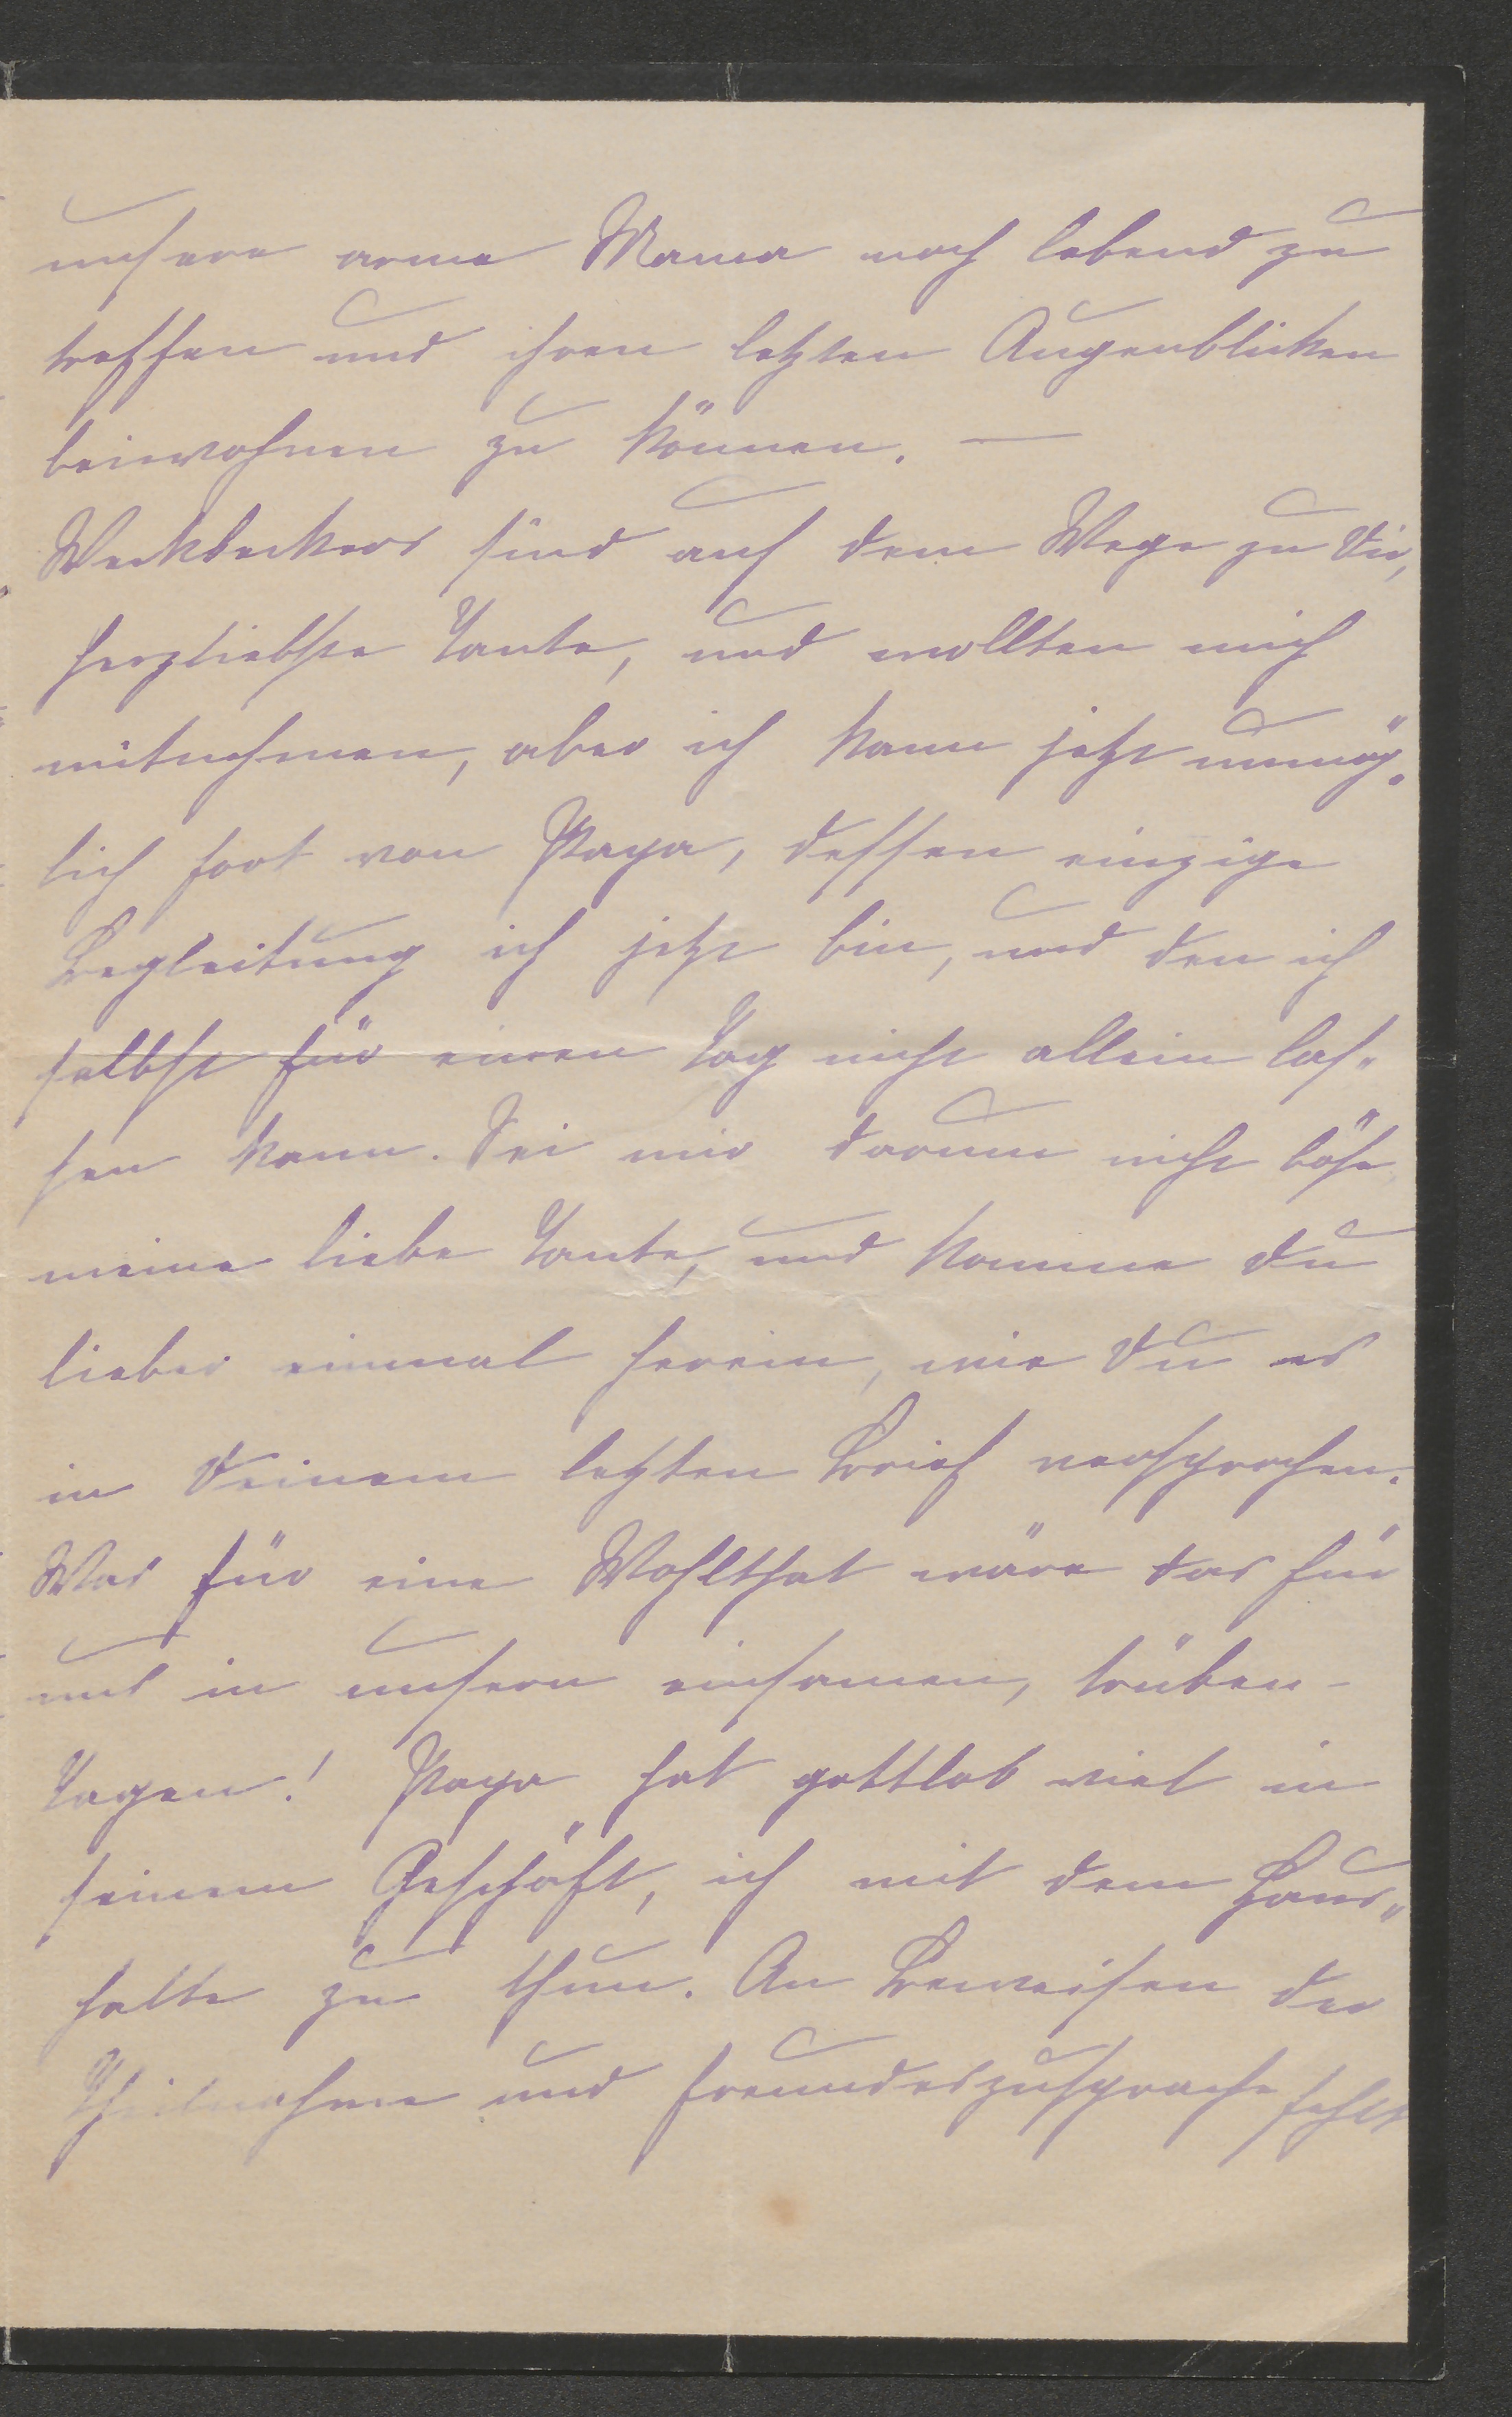 unsere arme Mama noch lebend zu
treffen und ihren letzten Augenblicken
beiwohnen zu können. —
Werkbeckers sind auf dem Wege zu Dir,
herzliebste Tante, und wollten mich
mitnehmen, aber ich kann jetzt unmög-
lich fort von Papa, dessen einzige
Begleitung ich jetzt bin, und den ich
selbst für einen Tag nicht allein las-
sen kann. Sei mir darum nicht böse
meine liebe Tante, und komme Du
lieber einmal herein, wie Du es
in Deinem letzten Brief versprochen.
Was für eine Wohlthat wäre das für
uns in unsern einsamen, trüben
Tagen! Papa hat gottlob viel in
seinem Geschäft, ich mit dem Haus-
halte zu thun. An Beweisen der
Theilnahme und Freundeszusprache fehlt